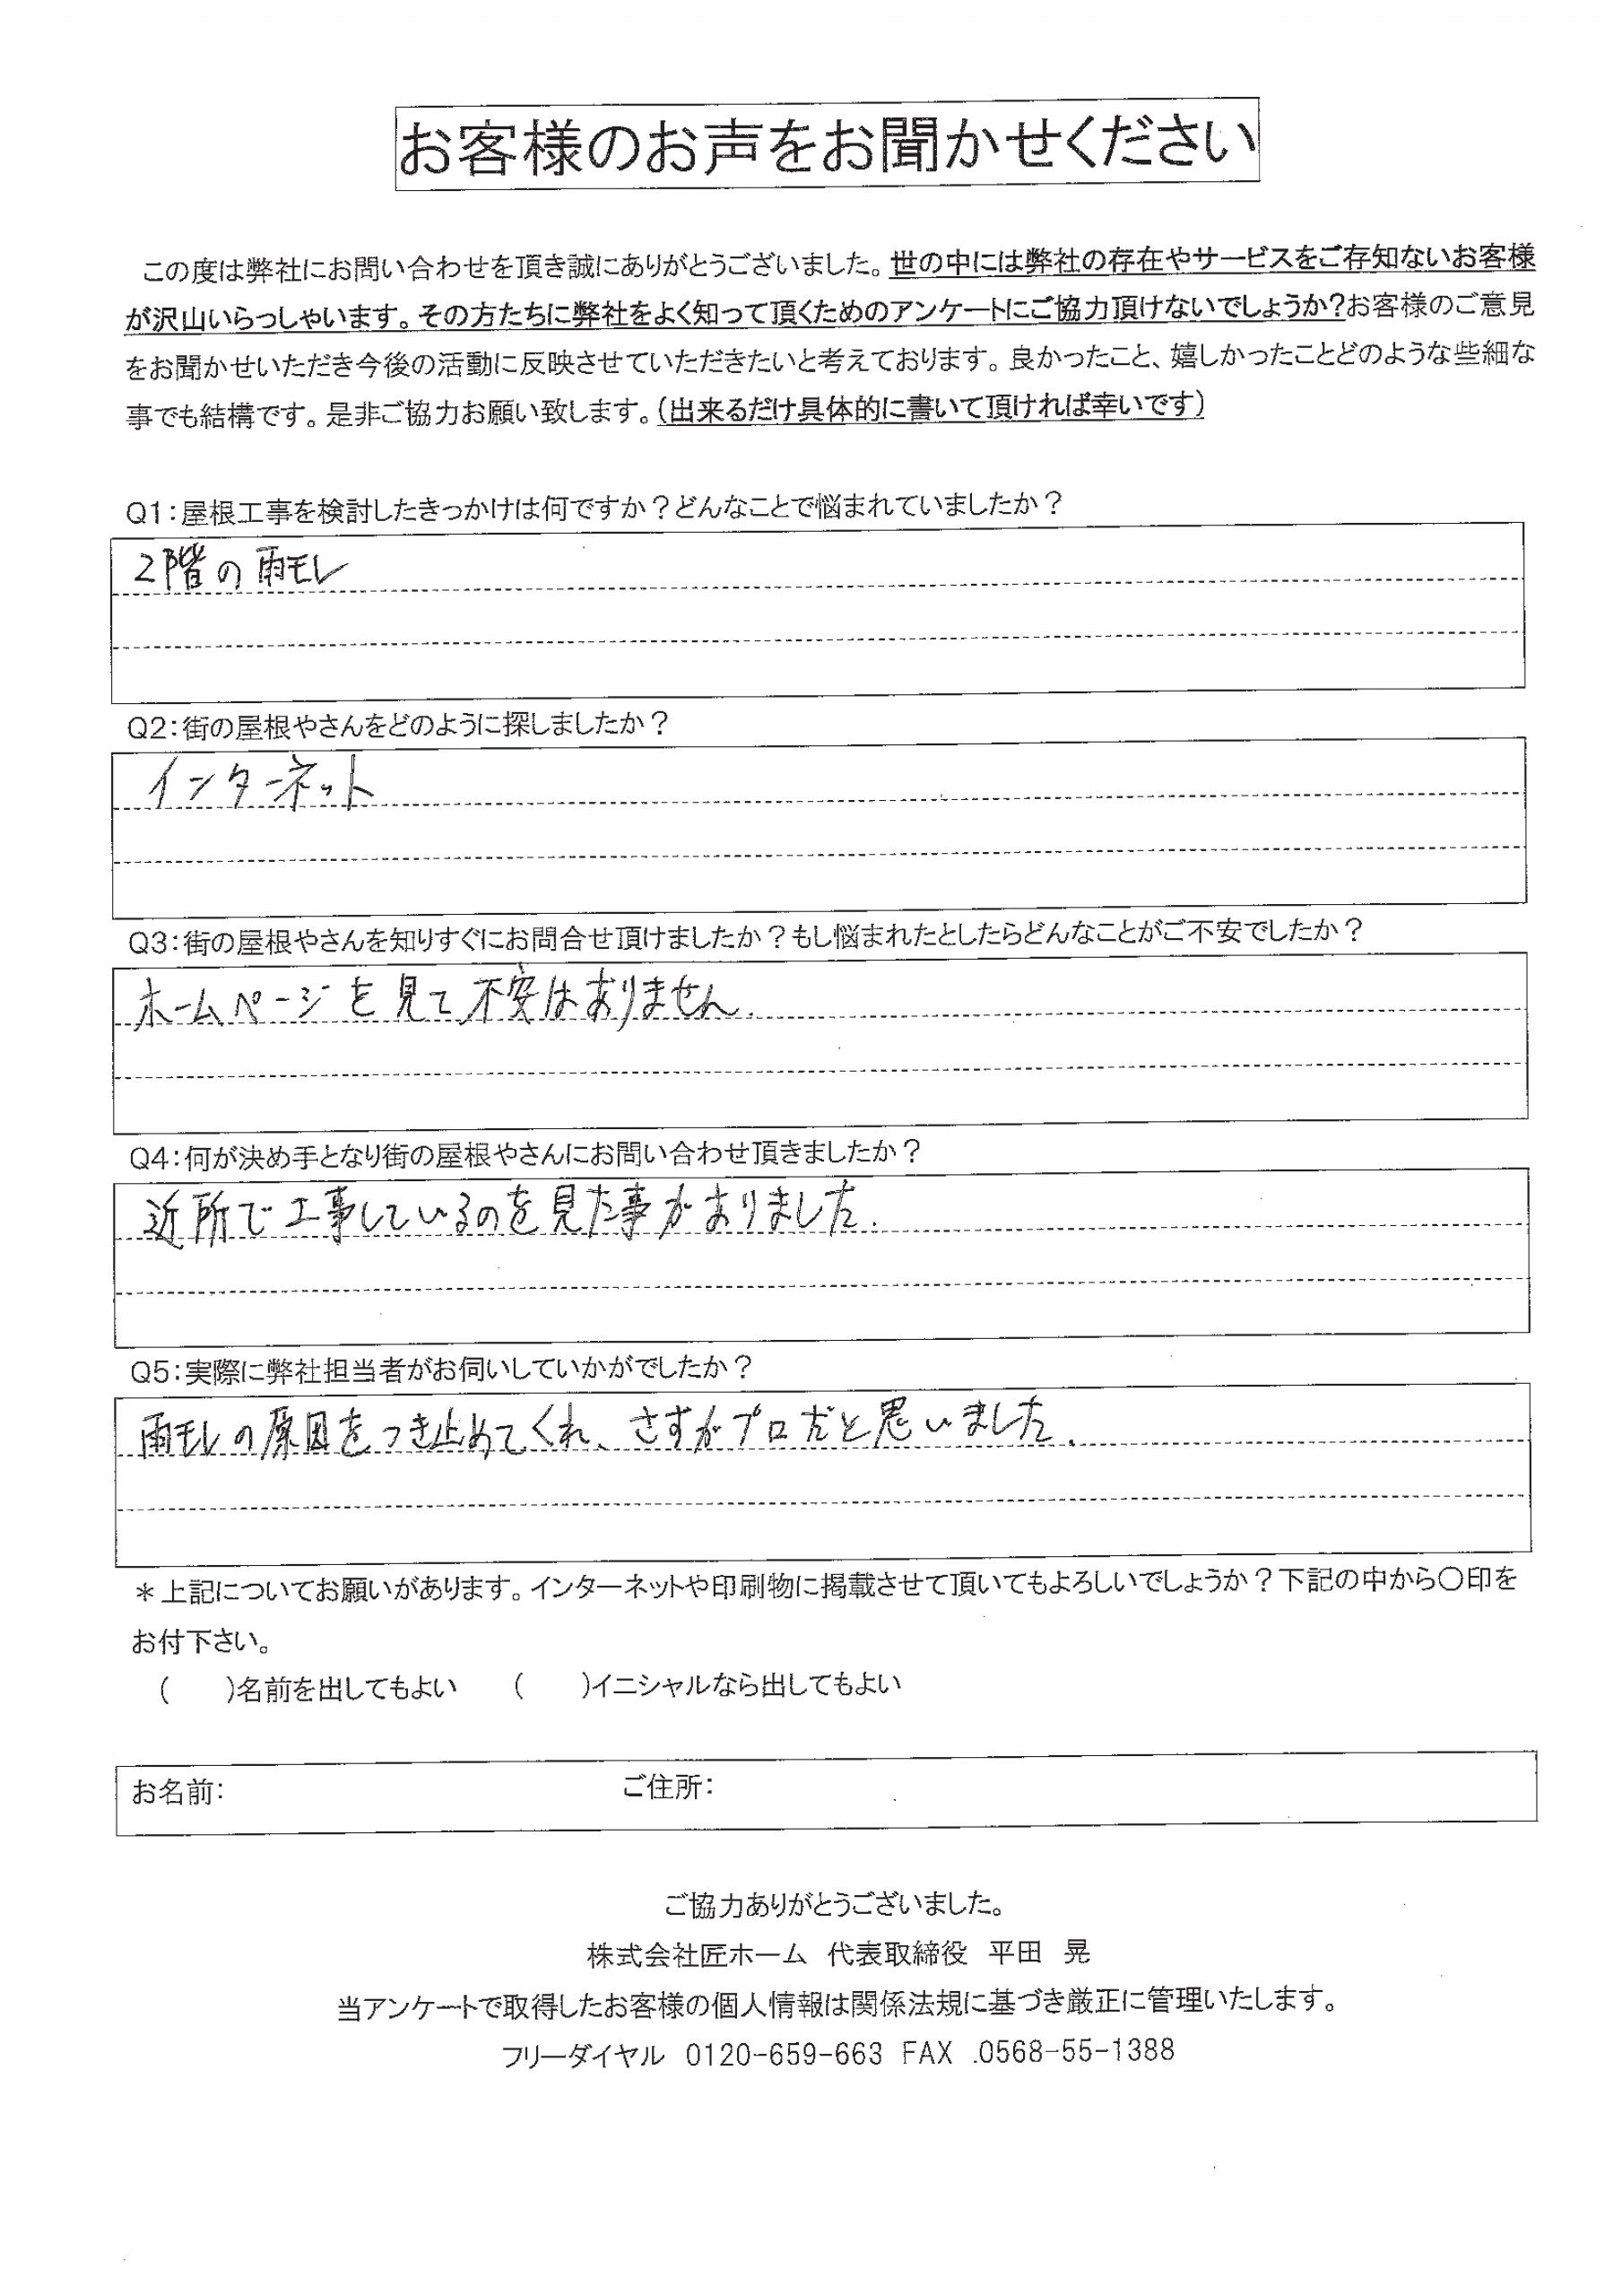 お客様のお声をお聞かせください
この度は弊社にお問い合わせを頂き誠にありがとうございました。世の中には弊社の存在やサービスをご存知ないお客様
が沢山いらっしゃいます。その方たちに弊社をよく知って頂くためのアンケートにご協力頂けないでしょうか?お客様のご意見
をお聞かせいただき今後の活動に反映させていただきたいと考えております。良かったこと、嬉しかったことどのような些細な
事でも結構です。是非ご協力お願い致します。(出来るだけ具体的に書いて頂ければ幸いです)
Q1:屋根工事を検討したきっかけは何ですか?どんなことで悩まれていましたか?
2階の雨モレ
Q2:街の屋根やさんをどのように探しましたか?
インターネット
Q3:街の屋根やさんを知りすぐにお問合せ頂けましたか?もし悩まれたとしたらどんなことがご不安でしたか?
ホームページを見て不安はありません.
Q4:何が決め手となり街の屋根やさんにお問い合わせ頂きましたか?
近所で工事しているのを見た事がありました.
Q5:実際に弊社担当者がお伺いしていかがでしたか?
雨モレの原因をつき止めてくれ、さすがプロだと思いました.
*上記についてお願いがあります。インターネットや印刷物に掲載させて頂いてもよろしいでしょうか?下記の中から〇印を
お付下さい。
(　　)名前を出してもよい　　(　　)イニシャルなら出してもよい
お名前:　ご住所:
ご協力ありがとうございました。
株式会社匠ホーム　代表取締役　平田　晃
当アンケートで取得したお客様の個人情報は関係法規に基づき厳正に管理いたします。
フリーダイヤル　0120-659-663 FAX .0568-55-1388